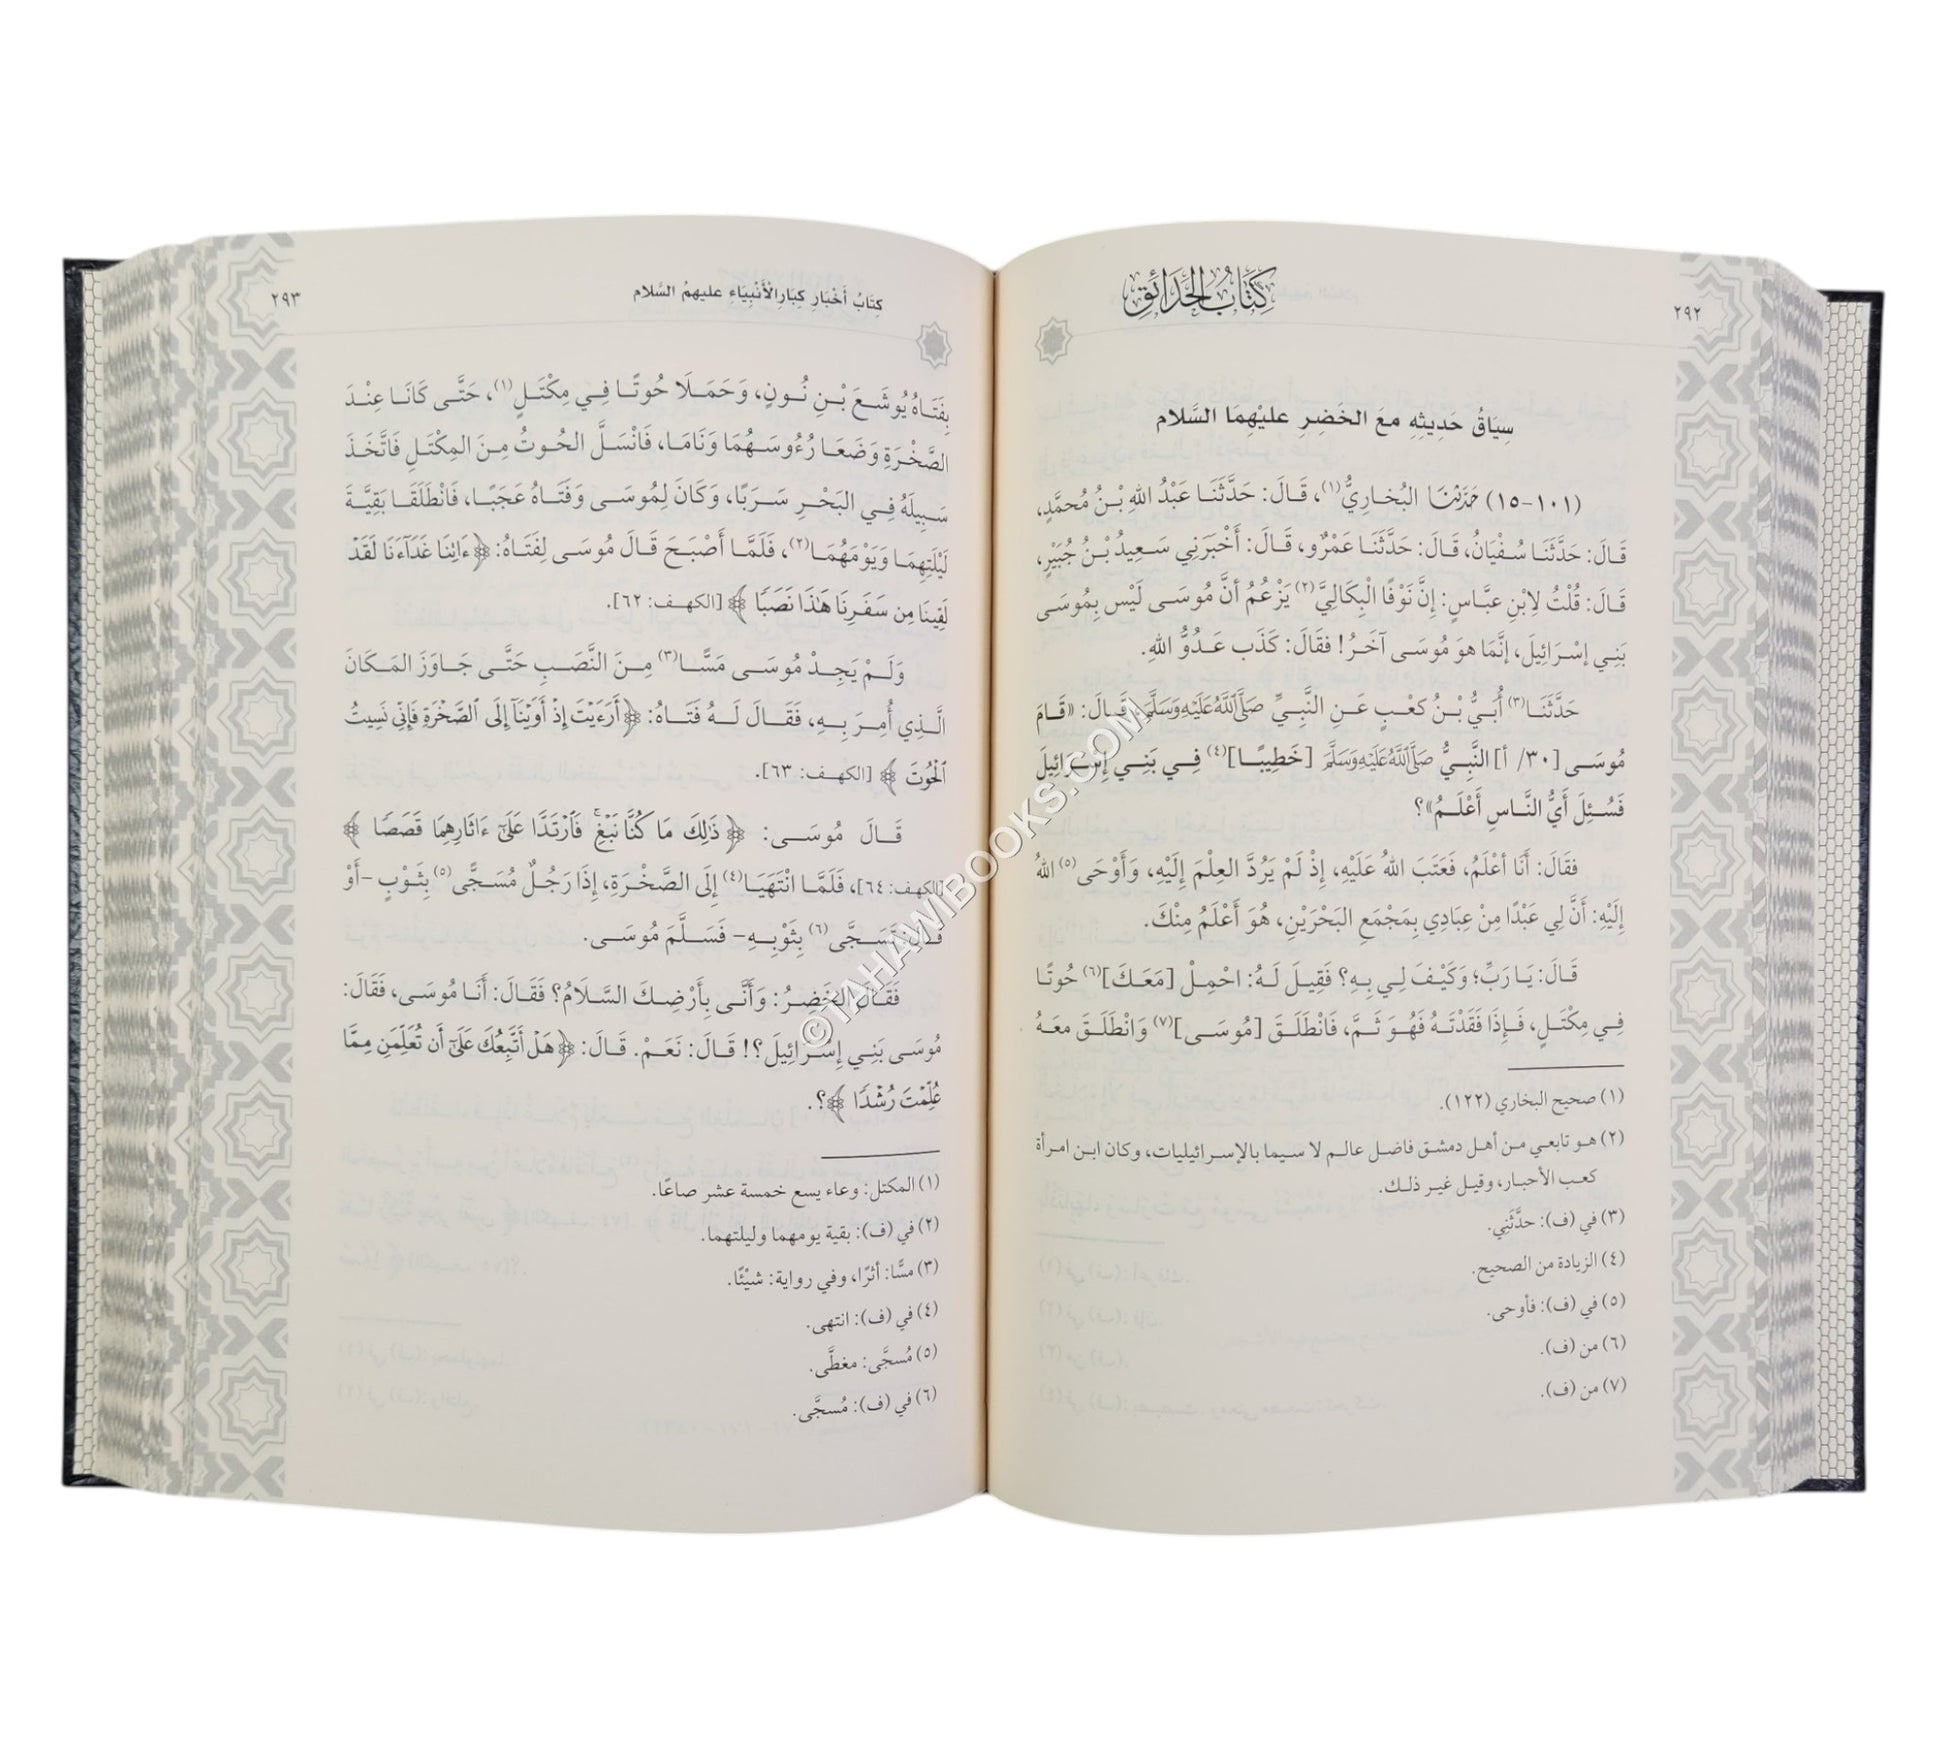 ٢٩٢
كِتَابُ الحَدَائِقِ
سِيَاقُ حَدِيثِهِ مَعَ الخَضِرِ عليْهِمَا السَّلام
(١٠١-١٥) حَدَّثَنَا البُخاريُّ(١)، قَـالَ: حَدَّثَنَا عَبْدُ اللهِ بْـنُ مُحمَّدٍ،
قَـالَ: حَدَّثَنَا سُفْيَانُ، قَـالَ: حَدَّثَنَا عَمْرٌو، قَـالَ: أَخْبَرَنِي سَعِيدُ بْـنُ جُبَيْرٍ،
قَـالَ: قُلْتُ لِابْنِ عبَّـاسٍ: إِنَّ نَوْفًا الْبِكَالِيَّ(٢) يَزْعُمُ أنَّ مُوسَـى لَيْسَ بِمُوسَـى
بَنِي إسْـرَائِيلَ، إنَّمَا هوَ مُوسَى آخَـرُ! فقَالَ: كَذَب عَـدُوُّ اللهِ.
حَدَّثَنَـا(٣) أُبَيُّ بْـنُ كعْـبٍ عَنِ النَّبِيِّ صَلَّى اللَّهُ عَلَيْهِ وَسَلَّمَ، قَـالَ: «قَـامَ
مُوسَـى [٣٠/ أ] النَّبِيُّ صَلَّى اللَّهُ عَلَيْهِ وَسَلَّمَ [خَطِيبًـا](٤) فِـي بَنِـي إِسْـرَائِيلَ
فَسُـئِلَ أَيُّ النَّـاسِ أَعْلَـمُ»؟
فقَالَ: أَنَا أعْلَمُ، فَعَتَبَ اللهُ عَلَيْهِ، إِذْ لَمْ يَرُدَّ العِلْمَ إِلَيْهِ، وَأَوْحَى(٥) اللهُ
إِلَيْهِ: أَنَّ لِي عَبْدًا مِنْ عِبَادِي بِمَجْمَعِ البَحْرَيْنِ، هُوَ أَعْلَمُ مِنْكَ.
قَـالَ: يَـا رَبِّ؛ وَكَيْـفَ لِـي بِهِ؟ فَقِيلَ لَـهُ: احْمِـلْ [مَعَـكَ](٦) حُوتًـا
فِـي مِكْتَـلٍ، فَـإِذَا فَقَدْتَـهُ فَهُـوَ ثَـمَّ، فَانْطَلَـقَ [مُوسَـى](٧) وَانْطَلَـقَ معَـهُ
(١) صحيح البخاري (١٢٢).
(٢) هـو تابعـي مـن أهـل دمشـق فاضـل عالـم لا سـيما بالإسـرائيليات، وكان ابـن امـرأة
كعـب الأحبـار، وقيـل غيـر ذلـك.
(٣) في (ف): حدَّثَنِي.
(٤) الزيادة من الصحيح.
(٥) في (ف): فأوحى.
(٦) من (ف).
(٧) من (ف).
كِتَابُ أَخْبَارِ كِبَارِ الْأَنْبِيَاءِ عليهمُ السَّلام
٢٩٣
بِفَتَـاهُ يُوشَـعَ بْـنِ نُـونٍ، وَحَمَـلَا حُوتًـا فِـي مِكْتَـلٍ(١)، حَتَّـى كَانَـا عِنْـدَ
الصَّخْـرَةِ وَضَعَـا رُءُوسَـهُمَا وَنَامَـا، فَانْسَـلَّ الحُـوتُ مِـنَ المِكْتَـلِ فَاتَّخَـذَ
سَـبِيلَهُ فِـي البَحْـرِ سَـرَبًا، وَكَانَ لِمُوسَـى وَفَتَـاهُ عَجَبًـا، فَانْطَلَقَـا بَقِيَّـةَ
لَيْلَتِهِمَـا وَيَوْمَهُمَـا(٢)، فَلَمَّـا أَصْبَـحَ قَـالَ مُوسَـى لِفَتَـاهُ: ﴿ءَاتِنَا غَدَآءَنَا لَقَدۡ
لَقِينَا مِن سَفَرِنَا هَٰذَا نَصَبٗا﴾ [الكهـف: ٦٢].
وَلَـمْ يَجِـدْ مُوسَـى مَسًّـا(٣) مِـنَ النَّصَـبِ حَتَّـى جَـاوَزَ المَـكَانَ
الَّـذِي أُمِـرَ بِـهِ، فَقَـالَ لَـهُ فَتَـاهُ: ﴿أَرَءَيۡتَ إِذۡ أَوَيۡنَآ إِلَى ٱلصَّخۡرَةِ فَإِنِّي نَسِيتُ
ٱلۡحُوتَ﴾ [الكهـف: ٦٣].
قَـالَ مُوسَـى: ﴿ذَٰلِكَ مَا كُنَّا نَبۡغِۚ فَٱرۡتَدَّا عَلَىٰٓ ءَاثَارِهِمَا قَصَصٗا﴾
[الكهـف: ٦٤]، فَلَمَّـا انْتَهَيَـا(٤) إِلَى الصَّخْـرَةِ، إِذَا رَجُـلٌ مُسَـجًّى(٥) بِثَـوْبٍ -أَوْ
قَالَ: تَسَـجَّى(٦) بِثَوْبِـهِ- فَسَـلَّمَ مُوسَـى.
فَقَـالَ الخَضِـرُ: وَأَنَّـى بِأَرْضِـكَ السَّـلَامُ؟ فَقَـالَ: أَنَـا مُوسَـى، فَقَالَ:
مُوسَـى بَنِـي إِسْـرَائِيلَ؟! قَـالَ: نَعَـمْ. قَـالَ: ﴿هَلۡ أَتَّبِعُكَ عَلَىٰٓ أَن تُعَلِّمَنِ مِمَّا
عُلِّمۡتَ رُشۡدٗا﴾؟.
(١) المكتل: وعاء يسع خمسة عشر صاعًا.
(٢) في (ف): بقية يومهما وليلتهما.
(٣) مسًّا: أثرًا، وفي رواية: شيْئًا.
(٤) في (ف): انتهى.
(٥) مُسجَّى: مغطَّى.
(٦) في (ف): مُسجَّى.
©TAHAWIBOOKS.COM